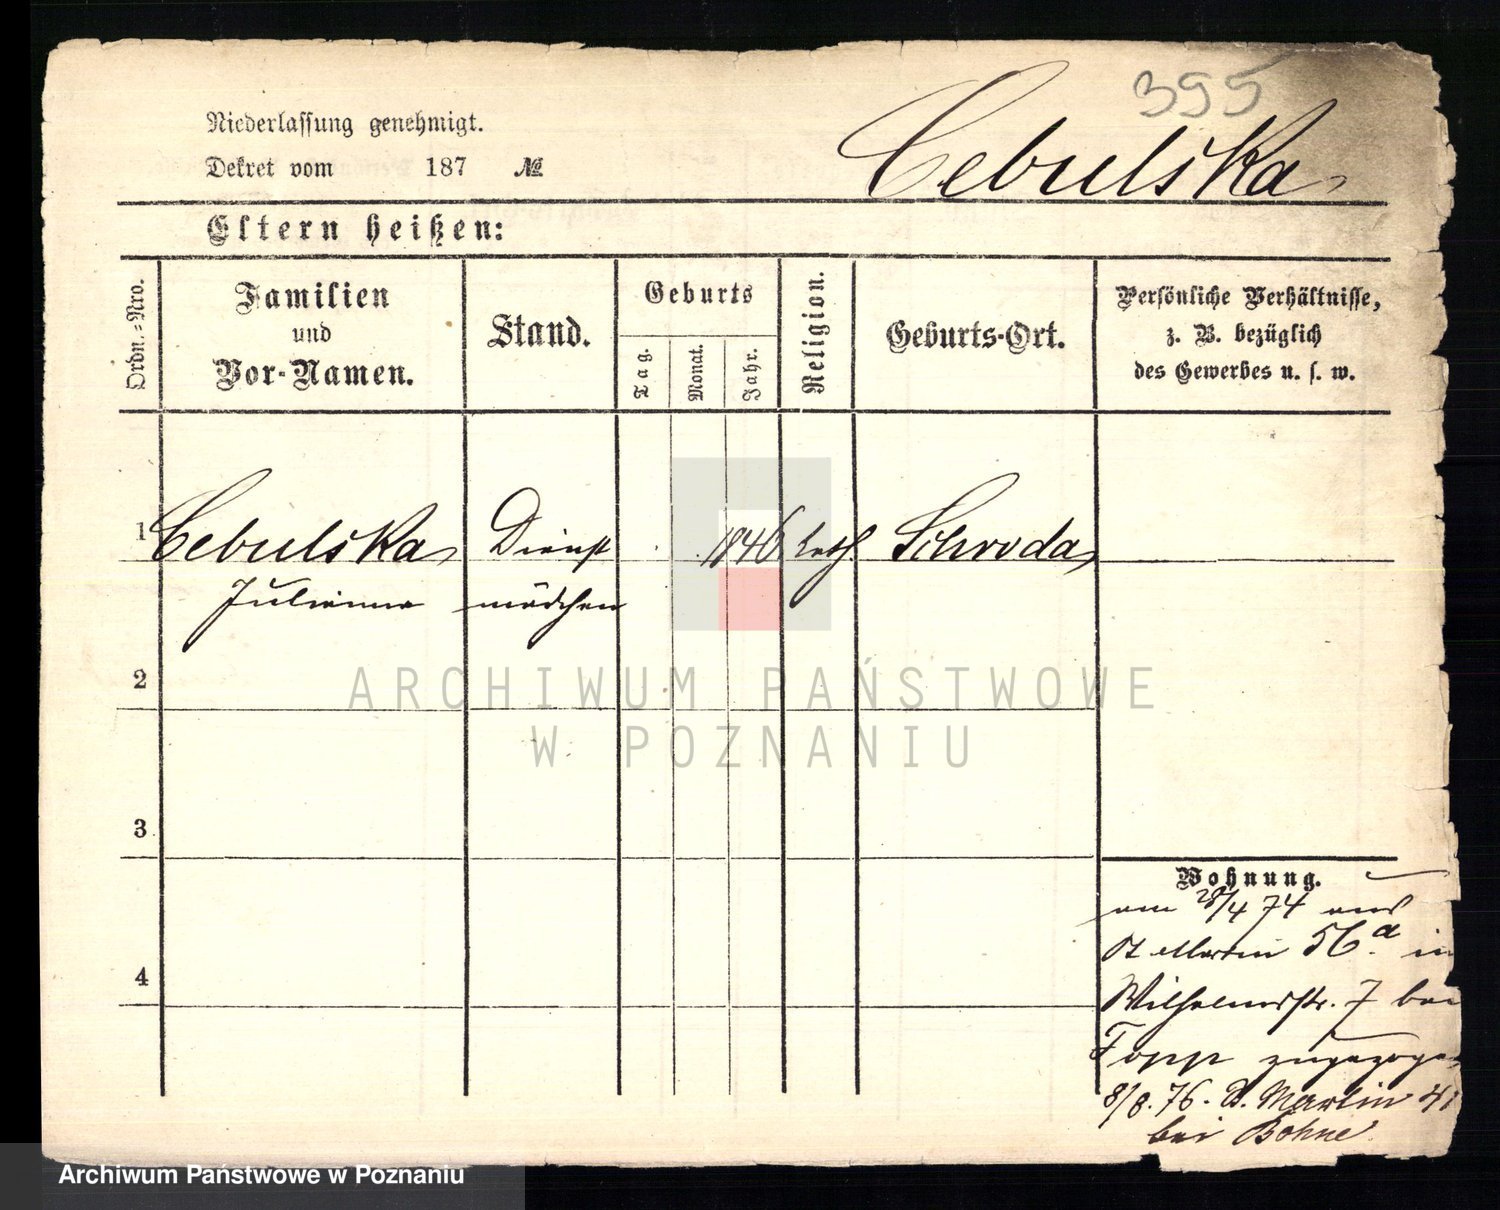 395
Niederlassung genehmigt.
Cebulska
Dekret vom 187 №
Eltern heißen:
Ordn.-Nro.
Familien
und
Vor-Namen.
Stand.
Geburts
Tag.
Monat.
Jahr.
Religion.
Geburts-Ort.
Persönliche Verhältnisse,
z. B. bezüglich
des Gewerbes u. s. w.
1 Cebulska Dienst 1846 kath Schroda
Julianna mädchen
2
ARCHIWUM PAŃSTWOWE
W POZNANIU
3
Wohnung.
am 28/4 74 aus
St Martin 56.a in
4
Wilhelmsstr. 7 bei
Topp zugezogen
8/8. 76. St. Martin 41
bei Bohne
Archiwum Państwowe w Poznaniu